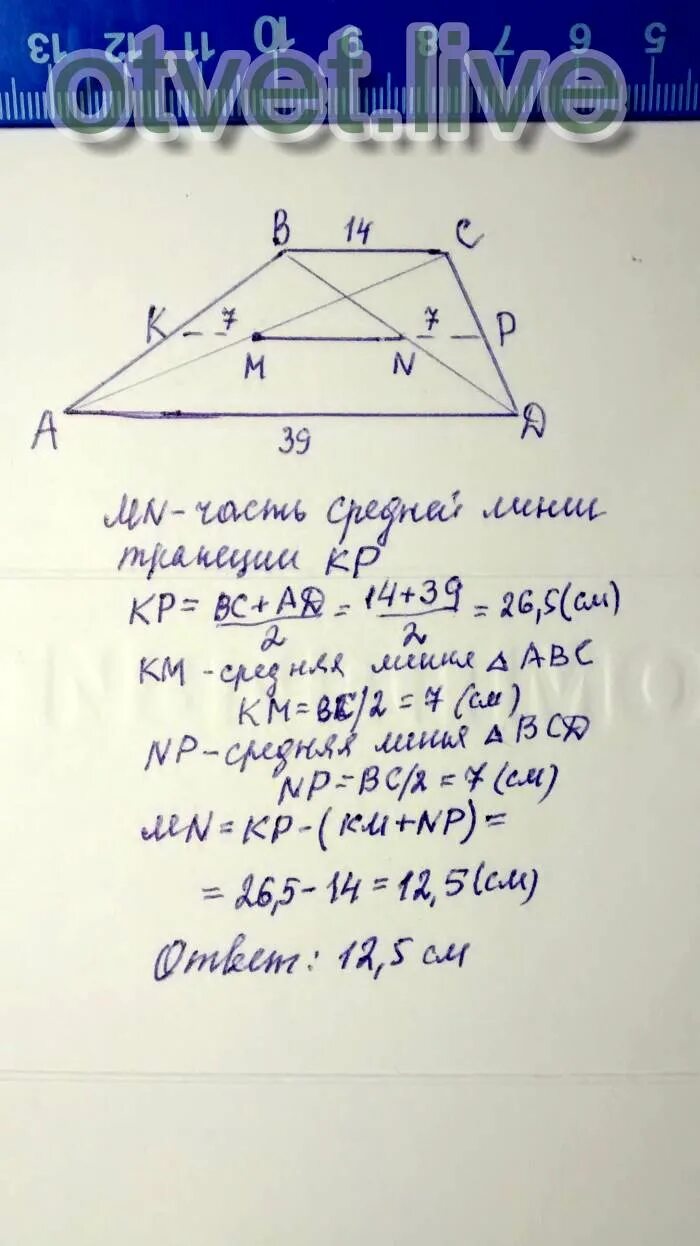 13 12 11 10 9 8 7 6 5
otvet.live
B 14 C
K 7 7 P
M N
A Д
39
MN - часть средней линии
трапеции KP
KP = BC + AД / 2 = 14 + 39 / 2 = 26,5 (см)
KM - средняя линия △ ABC
KM = BC/2 = 7 (см)
NP - средняя линия △ BCД
NP = BC/2 = 7 (см)
MN = KP - (KM + NP) =
= 26,5 - 14 = 12,5 (см)
Ответ: 12,5 см